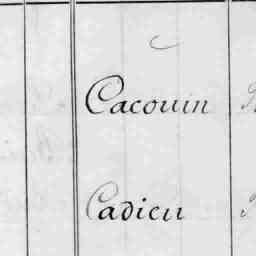 C
Cacouin
Cadieu